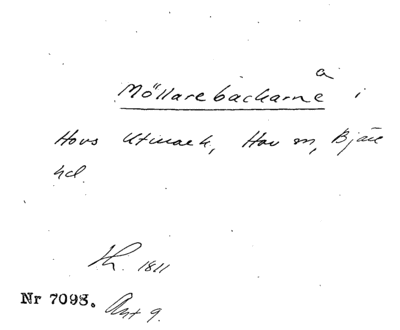 Möllarebackarne i
Hovs Utmark, Hov sn, Bjäre
hd.
Th. 1811
Nr 7098. Akt 9.